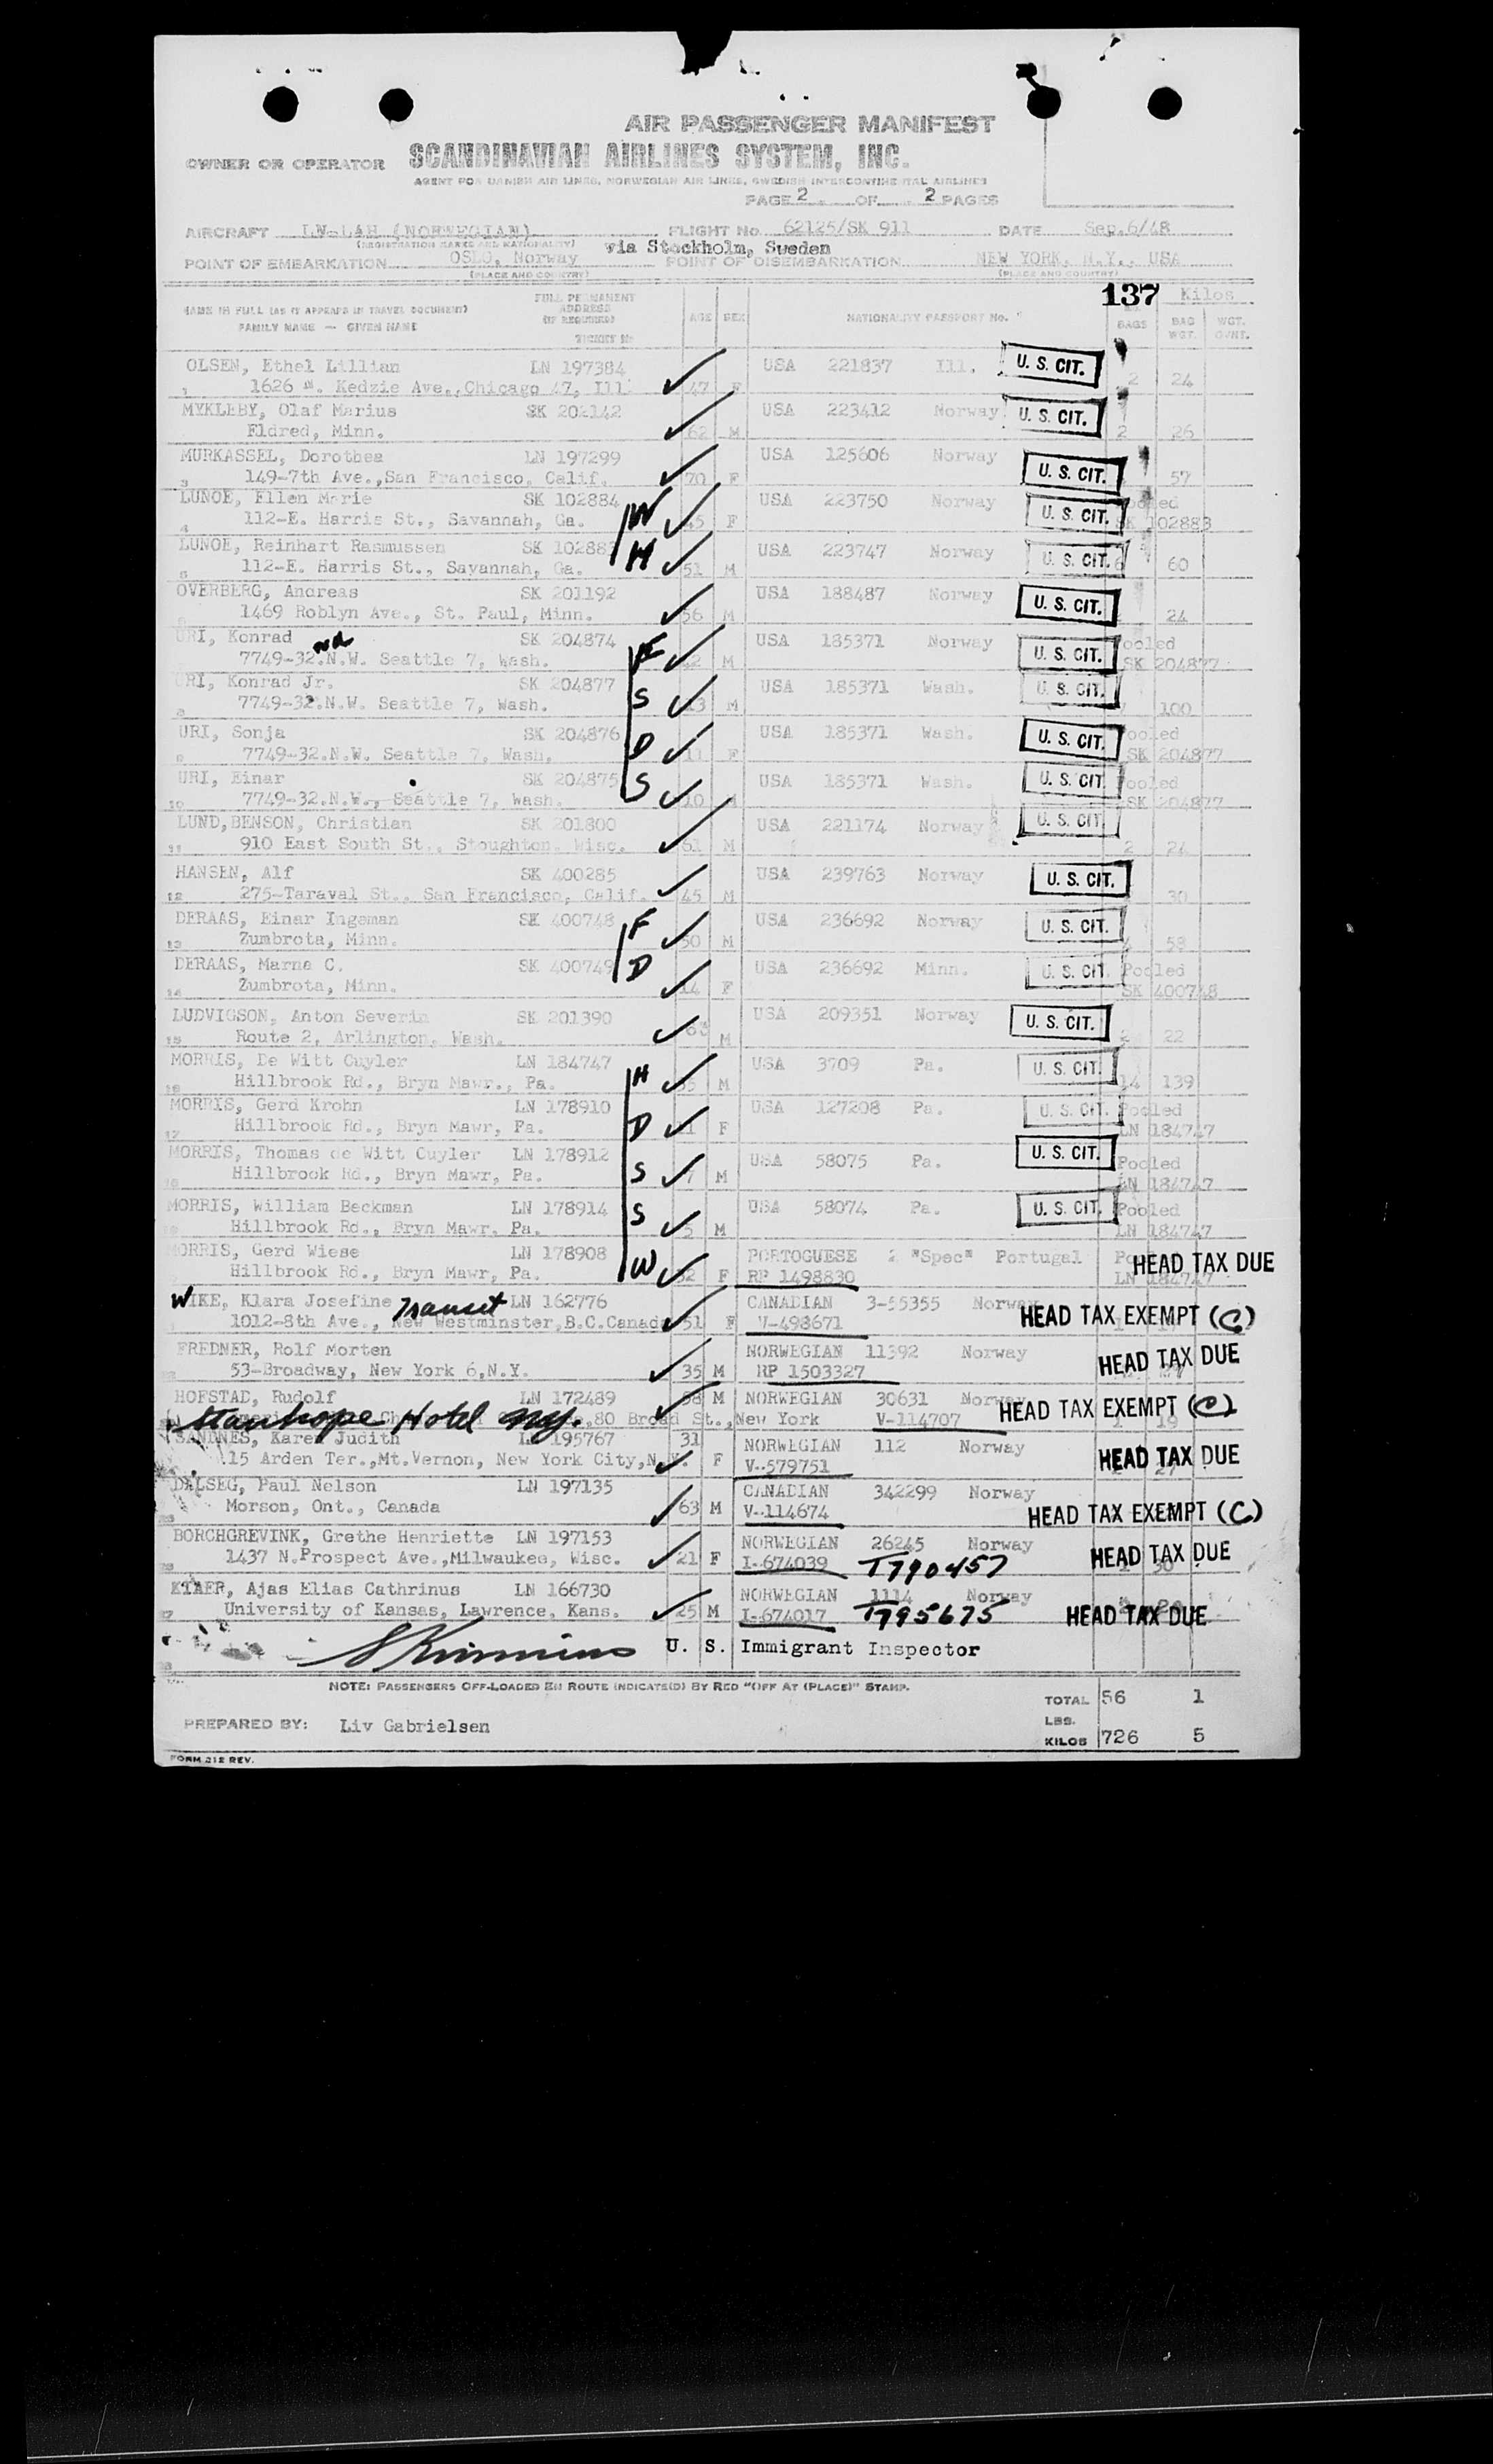 AIR PASSENGER MANIFEST
OWNER OR OPERATOR SCANDINAVIAN AIRLINES SYSTEM, INC.
AGENT FOR DANISH AIR LINES, NORWEGIAN AIR LINES, SWEDISH INTERCONTINENTAL AIRLINES
PAGE 2 OF 2 PAGES
AIRCRAFT LN-LAH (NORWEGIAN) FLIGHT No. 62125/SK 911 DATE Sep.6/48
(REGISTRATION MARKS AND NATIONALITY) via Stockholm, Sweden
POINT OF EMBARKATION OSLO, Norway POINT OF DISEMBARKATION NEW YORK, N.Y., USA
(PLACE AND COUNTRY) (PLACE AND COUNTRY)
137 Kilos
NAME IN FULL (AS IT APPEARS IN TRAVEL DOCUMENT) FAMILY NAME — GIVEN NAME FULL PERMANENT ADDRESS (IF REQUIRED) TICKET No AGE SEX NATIONALITY PASSPORT No. No. BAGS BAG WGT. WGT. OVHT.
OLSEN, Ethel Lillian LN 197384 USA 221837 Ill. U. S. CIT.
1 1626 N. Kedzie Ave.,Chicago 47, Ill. 47 F 2 24
MYKLEBY, Olaf Marius SK 202142 USA 223412 Norway U. S. CIT.
Eldred, Minn. 62 M 2 26
MURKASSEL, Dorothea LN 197299 USA 125606 Norway U. S. CIT.
3 149-7th Ave.,San Francisco, Calif. 70 F 57
LUNOE, Ellen Marie SK 102884 W USA 223750 Norway U. S. CIT. Pooled
4 112-E. Harris St., Savannah, Ga. 45 F SK 102883
LUNOE, Reinhart Rasmussen SK 102883 H USA 223747 Norway U. S. CIT.
5 112-E. Harris St., Savannah, Ga. 51 M 6 60
OVERBERG, Andreas SK 201192 USA 188487 Norway U. S. CIT.
1469 Roblyn Ave., St. Paul, Minn. 56 M 24
URI, Konrad SK 204874 F USA 185371 Norway U. S. CIT. Pooled
7749-32.nd N.W. Seattle 7, Wash. 42 M SK 204877
URI, Konrad Jr. SK 204877 S USA 185371 Wash. U. S. CIT.
8 7749-32.N.W. Seattle 7, Wash. 13 M 100
URI, Sonja SK 204876 D USA 185371 Wash. U. S. CIT. Pooled
9 7749-32.N.W. Seattle 7, Wash. 11 F SK 204877
URI, Einar SK 204875 S USA 185371 Wash. U. S. CIT. Pooled
10 7749-32.N.W., Seattle 7, Wash. 10 M SK 204877
LUND,BENSON, Christian SK 201800 USA 221174 Norway U. S. CIT.
11 910 East South St., Stoughton, Wisc. 61 M 2 24
HANSEN, Alf SK 400285 USA 239763 Norway U. S. CIT.
12 275-Taraval St., San Francisco, Calif. 45 M 30
DERAAS, Einar Ingeman SK 400748 F USA 236692 Norway U. S. CIT.
13 Zumbrota, Minn. 50 M 4 58
DERAAS, Marne C. SK 400749 D USA 236692 Minn. U. S. CIT. Pooled
14 Zumbrota, Minn. 14 F SK 400748
LUDVIGSON, Anton Severin SK 201390 USA 209351 Norway U. S. CIT.
15 Route 2, Arlington, Wash. 63 M 2 22
MORRIS, De Witt Cuyler LN 184747 H USA 3709 Pa. U. S. CIT.
16 Hillbrook Rd., Bryn Mawr., Pa. M 14 139
MORRIS, Gerd Krohn LN 178910 D USA 127208 Pa. U. S. CIT. Pooled
17 Hillbrook Rd., Bryn Mawr, Pa. F LN 184747
MORRIS, Thomas de Witt Cuyler LN 178912 S USA 58075 Pa. U. S. CIT. Pooled
18 Hillbrook Rd., Bryn Mawr, Pa. 7 M LN 184747
MORRIS, William Beckman LN 178914 S USA 58074 Pa. U. S. CIT. Pooled
19 Hillbrook Rd., Bryn Mawr, Pa. 5 M LN 184747
MORRIS, Gerd Wiese LN 178908 W PORTOGUESE 2 "Spec" Portugal HEAD TAX DUE
Hillbrook Rd., Bryn Mawr, Pa. 32 F RP 1498830 LN 184747
WIKE, Klara Josefine Transit LN 162776 CANADIAN 3-55355 Norway HEAD TAX EXEMPT (C)
1012-8th Ave., New Westminster,B.C.Canada 51 F V-498671
FREDNER, Rolf Morten NORWEGIAN 11392 Norway HEAD TAX DUE
53-Broadway, New York 6,N.Y. 35 M RP 1503327
HOFSTAD, Rudolf LN 172489 58 M NORWEGIAN 30631 Norway HEAD TAX EXEMPT (C)
Stanhope Hotel NY. 80 Broad St.,New York V-114707 19
SANDNES, Karen Judith LN 195767 31 NORWEGIAN 112 Norway HEAD TAX DUE
15 Arden Ter.,Mt.Vernon, New York City,N.Y. F V-579751 27
DALSEG, Paul Nelson LN 197135 CANADIAN 342299 Norway
Morson, Ont., Canada 63 M V-114674 HEAD TAX EXEMPT (C)
BORCHGREVINK, Grethe Henriette LN 197153 NORWEGIAN 26245 Norway HEAD TAX DUE
1437 N.Prospect Ave.,Milwaukee, Wisc. 21 F I-674039 T790457 30
KTAER, Ajas Elias Cathrinus LN 166730 NORWEGIAN 1114 Norway
27 University of Kansas, Lawrence, Kans. 25 M I-674017 T795675 HEAD TAX DUE
U. S. Immigrant Inspector
NOTE: PASSENGERS OFF-LOADED EN ROUTE INDICATE(D) BY RED "OFF AT (PLACE)" STAMP.
TOTAL 56 1
PREPARED BY: Liv Gabrielsen LBS.
KILOS 726 5
FORM 212 REV.